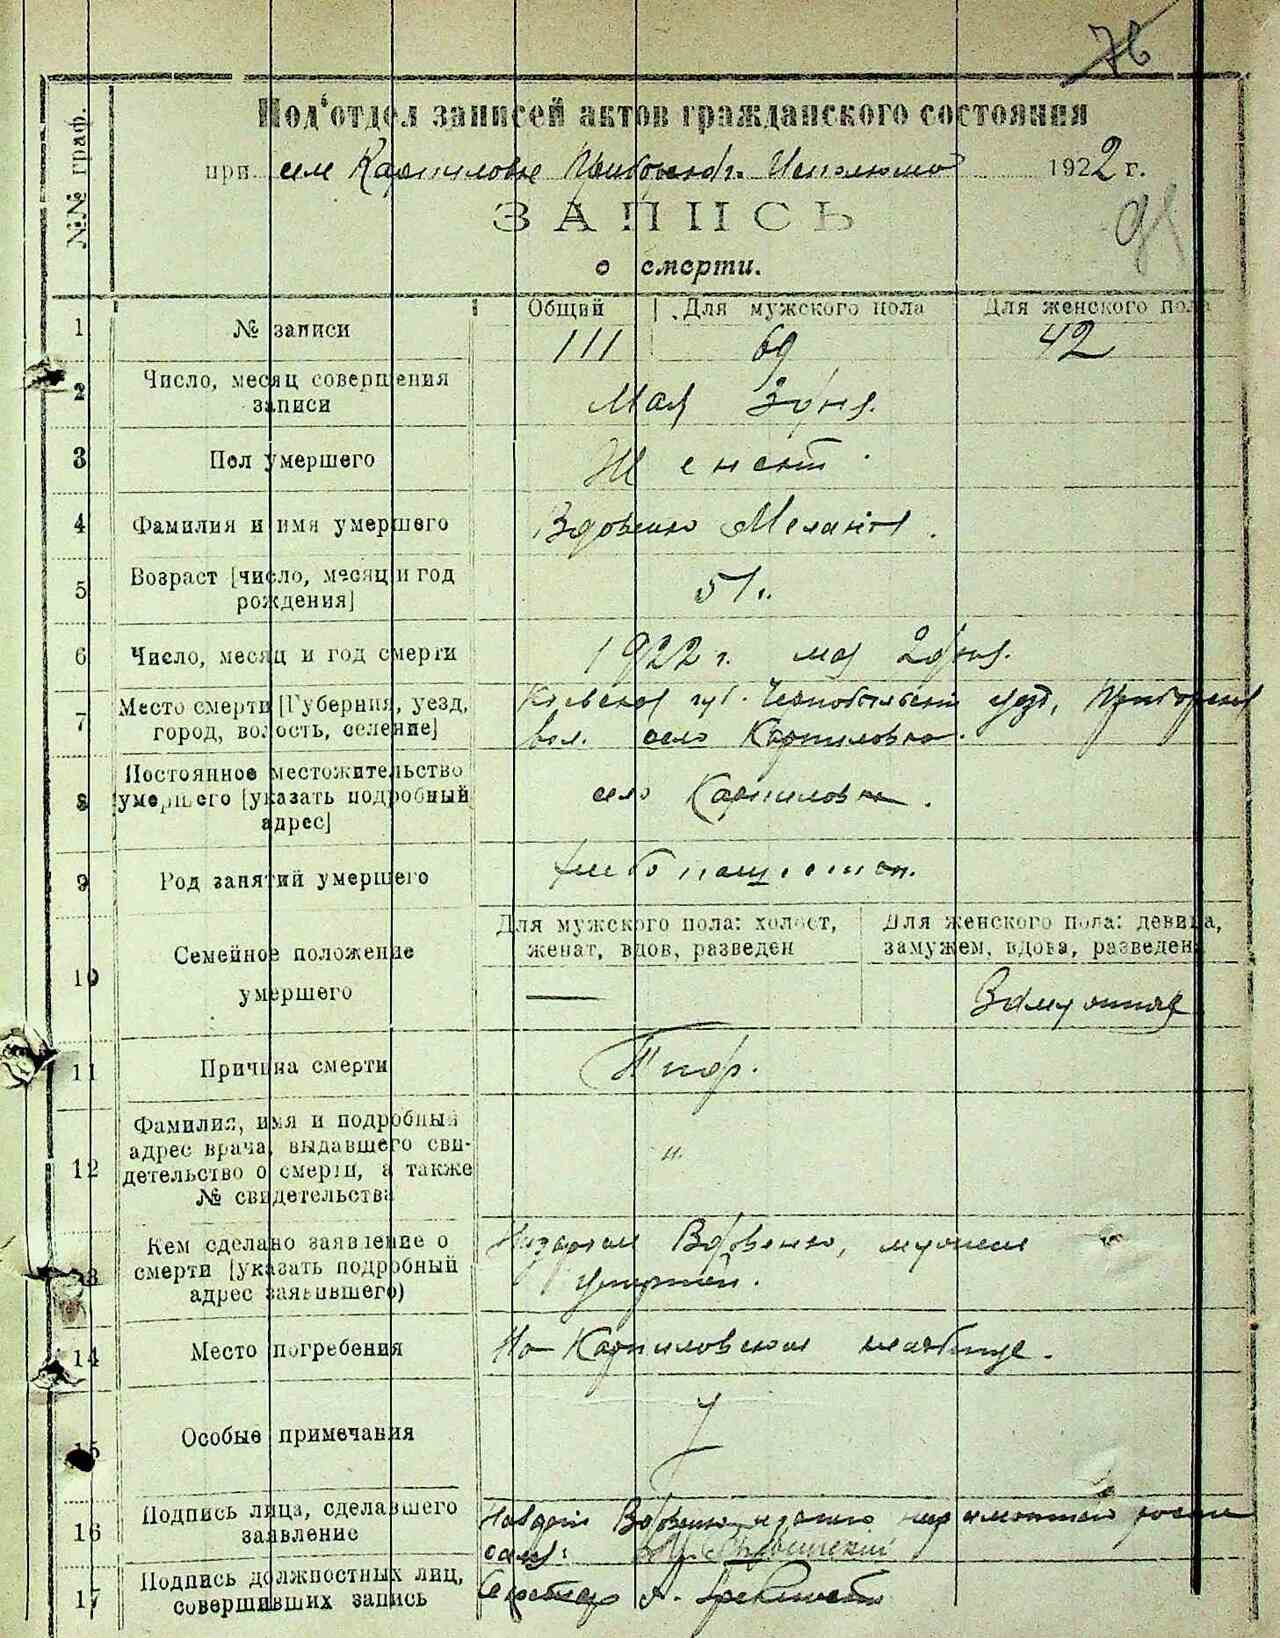 76
Под'отдел записей актов гражданского состояния
при селе Карпиловке 1922 г.
ЗАПИСЬ
98
о смерти.
№№ граф.
Общий Для мужского пола Для женского пола
1 № записи 111 69 42
2 Число, месяц совершения
записи Мая 3 дня.
3 Пол умершего Женск.
4 Фамилия и имя умершего Вдовенко Мелания.
5 Возраст [число, месяц и год
рождения] 51 г.
6 Число, месяц и год смерти 1922 г. мая 2 дня.
7 Место смерти [Губерния, уезд,
город, волость, селение] Киевская губ. Чернобыльский уезд,
вол. село Карпиловка.
8 Постоянное местожительство
умершего [указать подробный
адрес] село Карпиловка.
9 Род занятий умершего
10 Семейное положение
умершего
Для мужского пола: холост,
женат, вдов, разведен
Для женского пола: девица,
замужем, вдова, разведена
— Замужняя
11 Причина смерти Тиф.
12 Фамилия, имя и подробный
адрес врача, выдавшего сви-
детельство о смерти, а также
№ свидетельства "
13 Кем сделано заявление о
смерти [указать подробный
адрес заявившего) Вдовенко, мужем
умершей.
14 Место погребения На Карпиловском кладбище.
15 Особые примечания
16 Подпись лица, сделавшего
заявление Вдовенко
17 Подпись должностных лиц,
совершивших запись Секретарь А.